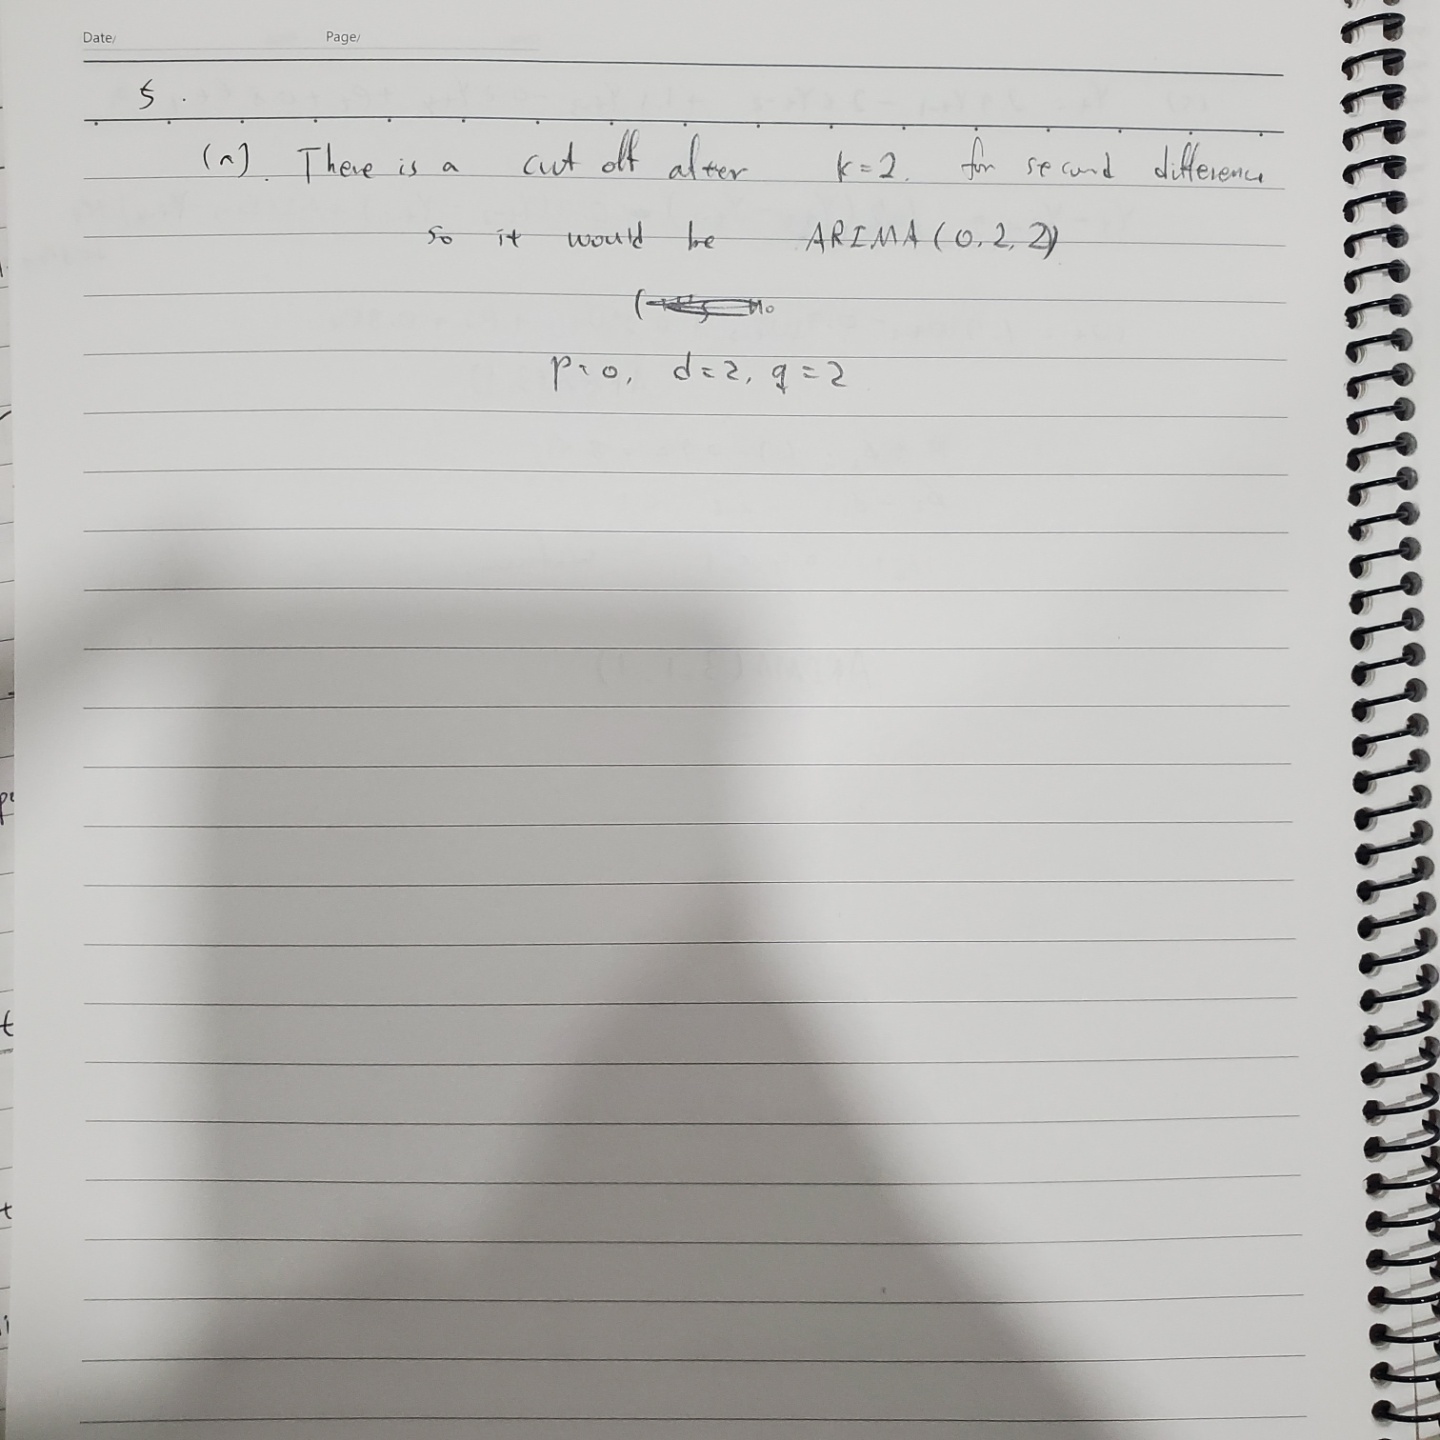 Date/ Page/
5.
(a). There is a cut off after k=2. for second difference
so it would be ARIMA(0,2,2)
p=0, d=2, q=2